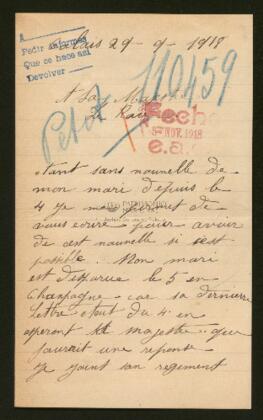 Pedir informes
Que se hace así
Devolver
Calais 29-9-1918
110459
A Sa Majesté
Le Roi
Fecha
5 NOV. 1918
e.a.
Petit
étant sans nouvelle de
mon mari depuis le
4 je me permet de
vous écrire pour avoir
de cest nouvelle si sest
possible. Mon mari
est disparue le 5 en
Champagne car sa dernière
lettre étant du 4 en
esperent majesté que
jaurait une reponse
je joint son regiment